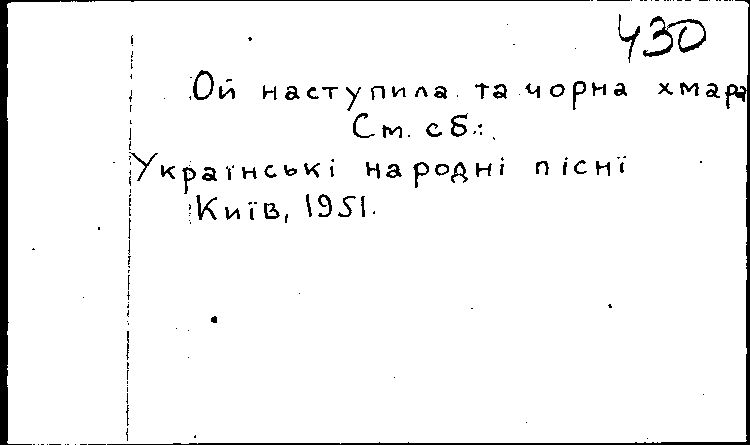 430
Ой наступила та чорна хмара
См. сб.:
Українські народні пісні
Київ, 1951.